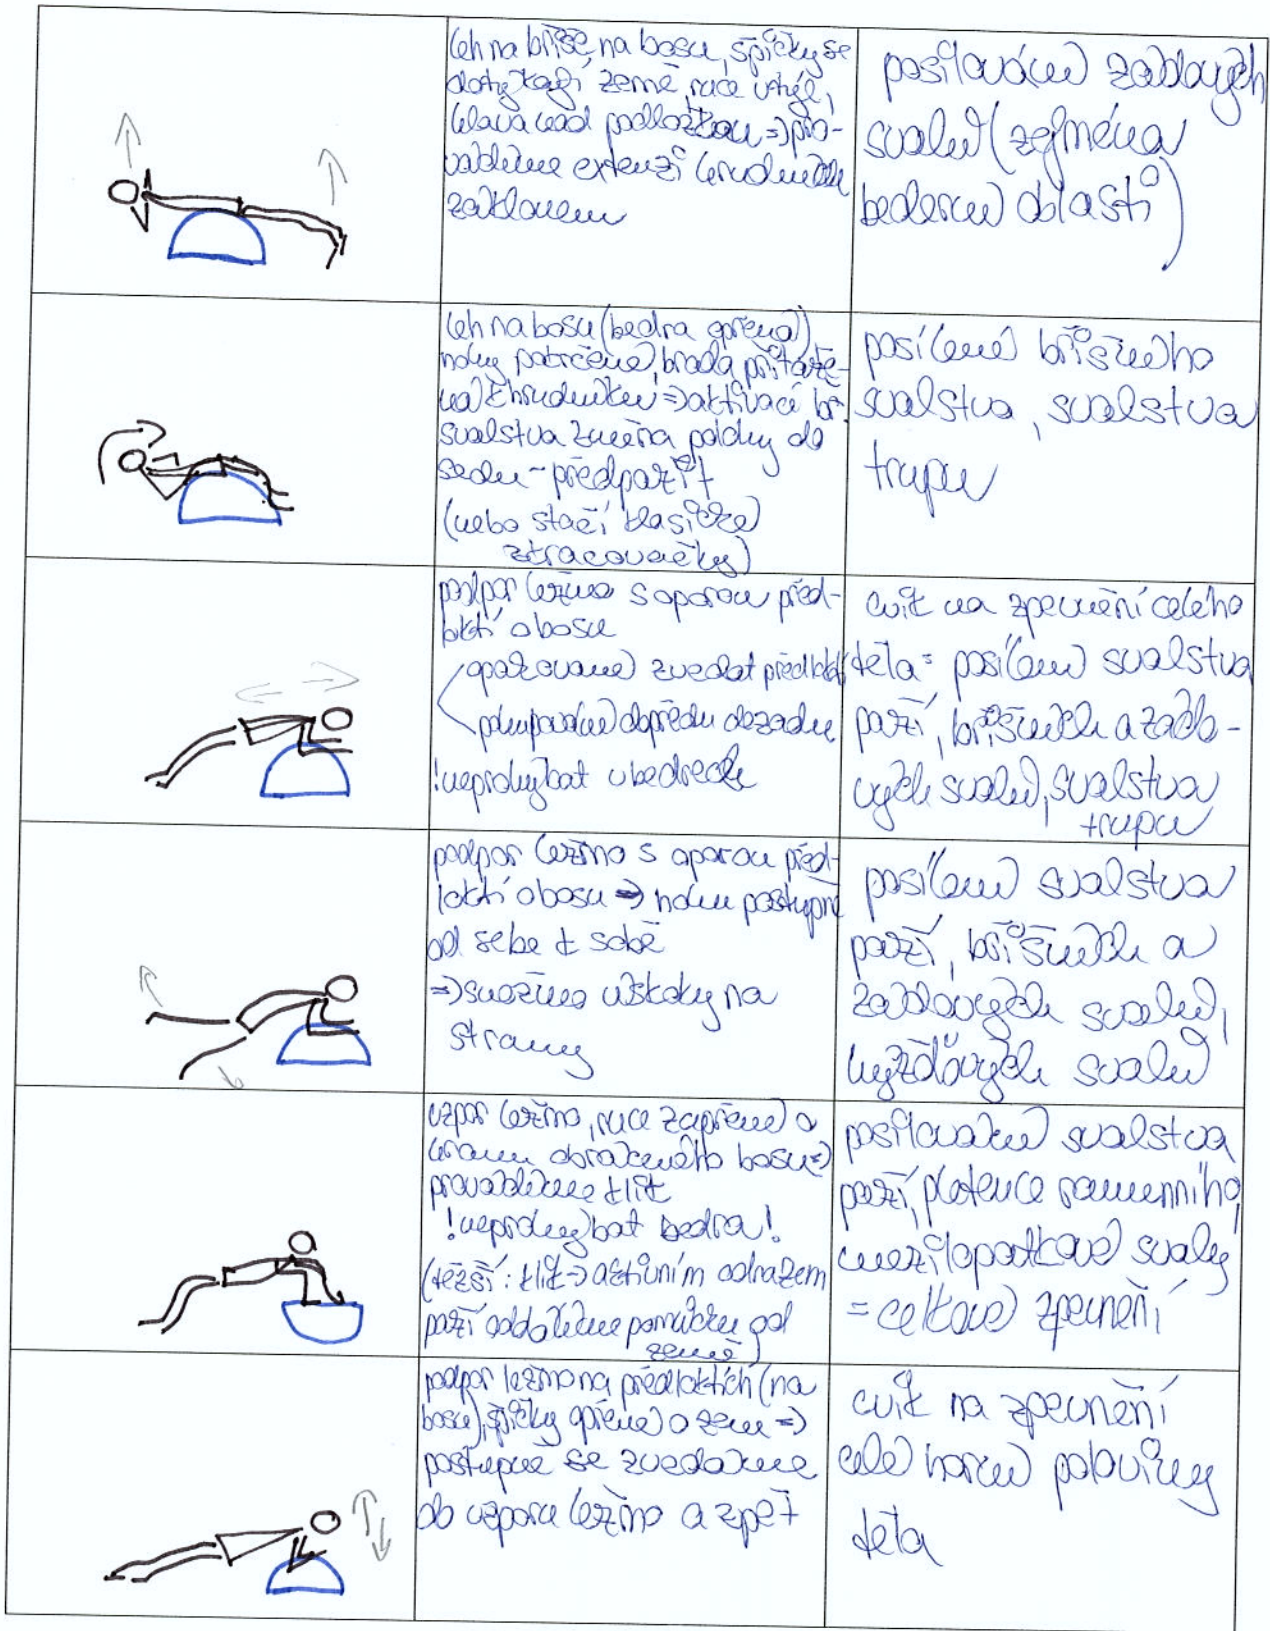 leh na břiše, na bosu, špičky se
dotýkají země, ruce v týle,
hlava nad podložkou => pro-
vádíme extenzi hrudníku
záklonem
posilování zádových
svalů (zejména
bederní oblasti)
leh na bosu (bedra opřená)
nohy pokrčené, brada přitaže-
ná k hrudníku => aktivací bř.
svalstva změna polohy do
sedu - předpažit
(nebo stačí klasické
zkracovačky)
posílené břišního
svalstva, svalstva
trupu
podpor ležmo s oporou před-
loktí o bosu
opakovaně zvedat předloktí
pohupování dopředu dozadu
! neprohýbat v bedrech
cvik na zpevnění celého
těla = posílení svalstva
paží, břišních a zádo-
vých svalů, svalstva
trupu
podpor ležmo s oporou před-
loktí o bosu => nohu postupně
od sebe k sobě
=> snožmo úskoky na
strany
posílení svalstva
paží, břišních a
zádových svalů,
hýžďových svalů
vzpor ležmo, ruce zapřené o
hranu obráceného bosu =>
provádíme klik
! neprohýbat bedra !
(těžší: klik => aktivním odrazem
paží oddálíme pomůcku od
země)
posilování svalstva
paží, pletence ramenního,
mezilopatkové svaly
= celkové zpevnění
podpor ležmo na předloktích (na
bosu), špičky opřené o zem =>
postupně se zvedáme
do vzporu ležmo a zpět
cvik na zpevnění
celé horní poloviny
těla